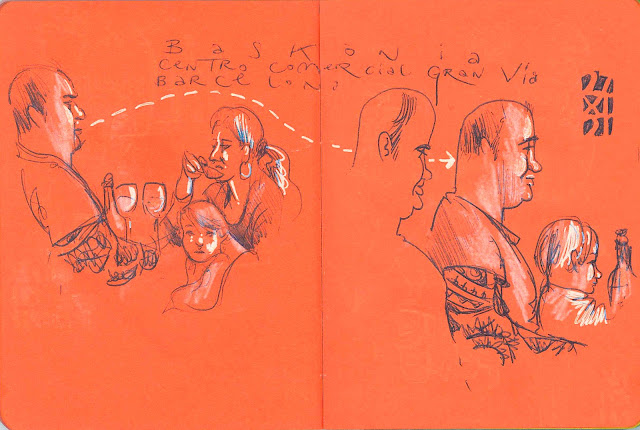 BasKonia
CENTRO COMERCIAL GRAN VÍA
BARCELONA